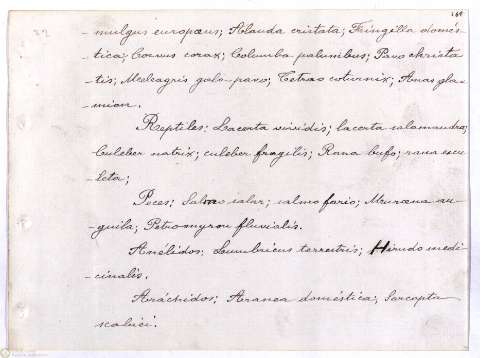 169
-mulgus europæus; Alauda cristata; Fringilla domés-
-tica; Corvus corax; Columba palumbus; Pavo christa-
-tis; Meleagris galo-pavo; Tetrao coturnix; Anas gla-
-mion.
Reptiles: Lacerta viridis; lacerta salamandra;
Culeber natrix; culeber fragilis; Rana bufo; rana escu-
-leta;
Peces: Salmo salar; salmo fario; Muræna an-
-guila; Petromyron fluvialis.
Anélidos: Lumbricus terrestris; Hirudo medi-
-cinalis.
Aráchidos: Aranea doméstica; Sarcopta
scabiei.